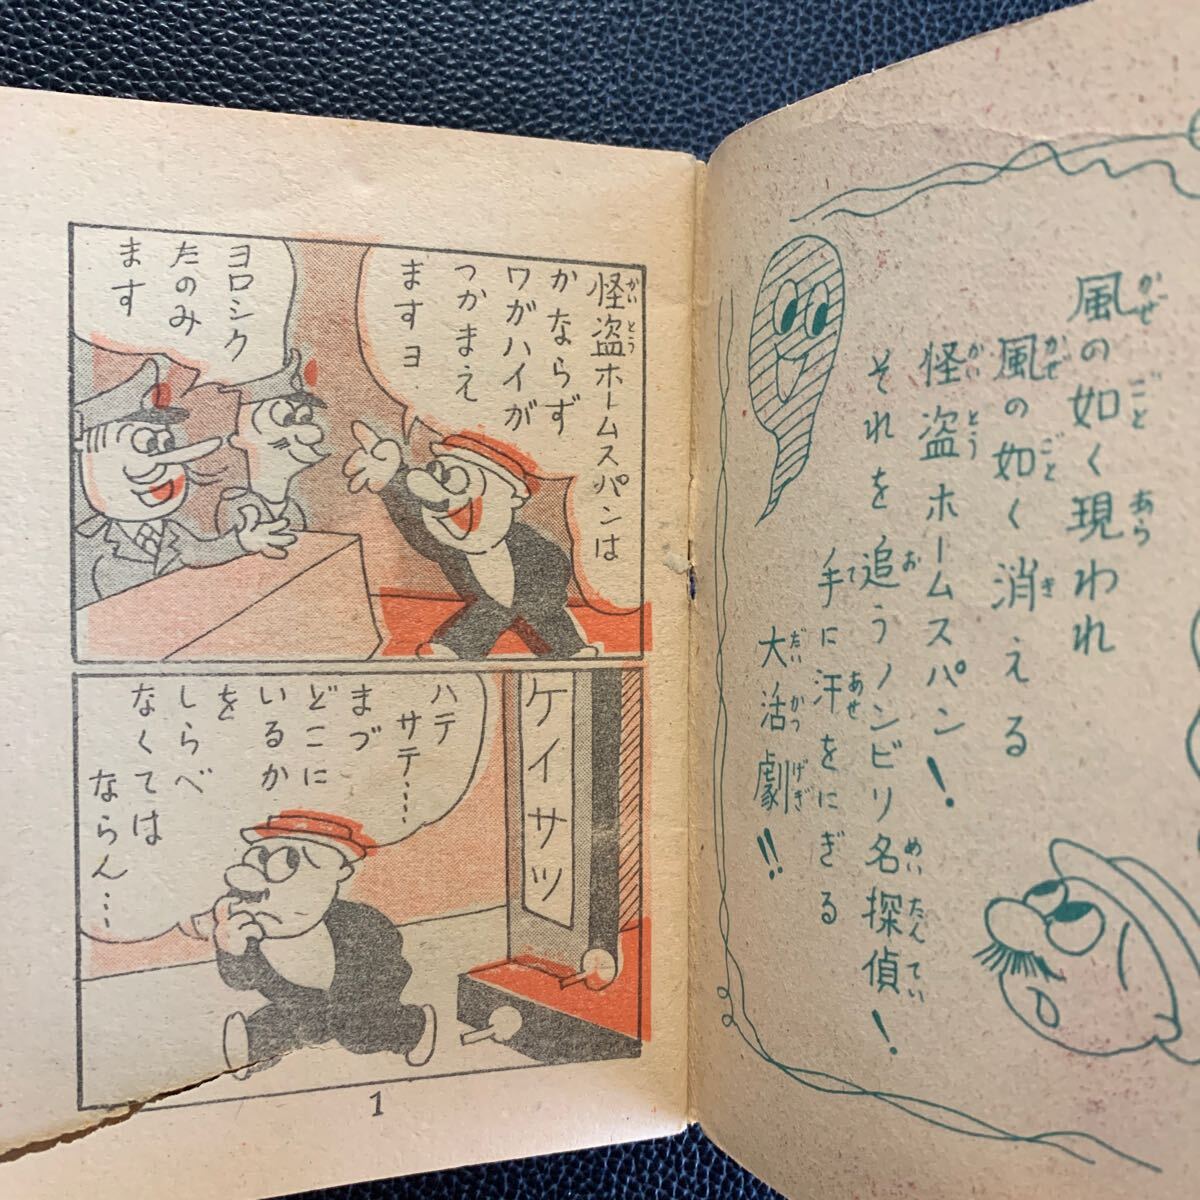 風の如く現われ
風の如く消える
怪盗ホームスパン！
それを追うノンビリ名探偵！
手に汗をにぎる
大活劇!!
怪盗ホームスパンは
かならず
ワガハイが
つかまえ
ますョ
ヨロシク
たのみ
ます
ケイサツ
ハテ
サテ…
まづ
どこに
いるか
を
しらべ
なくては
ならん…
1